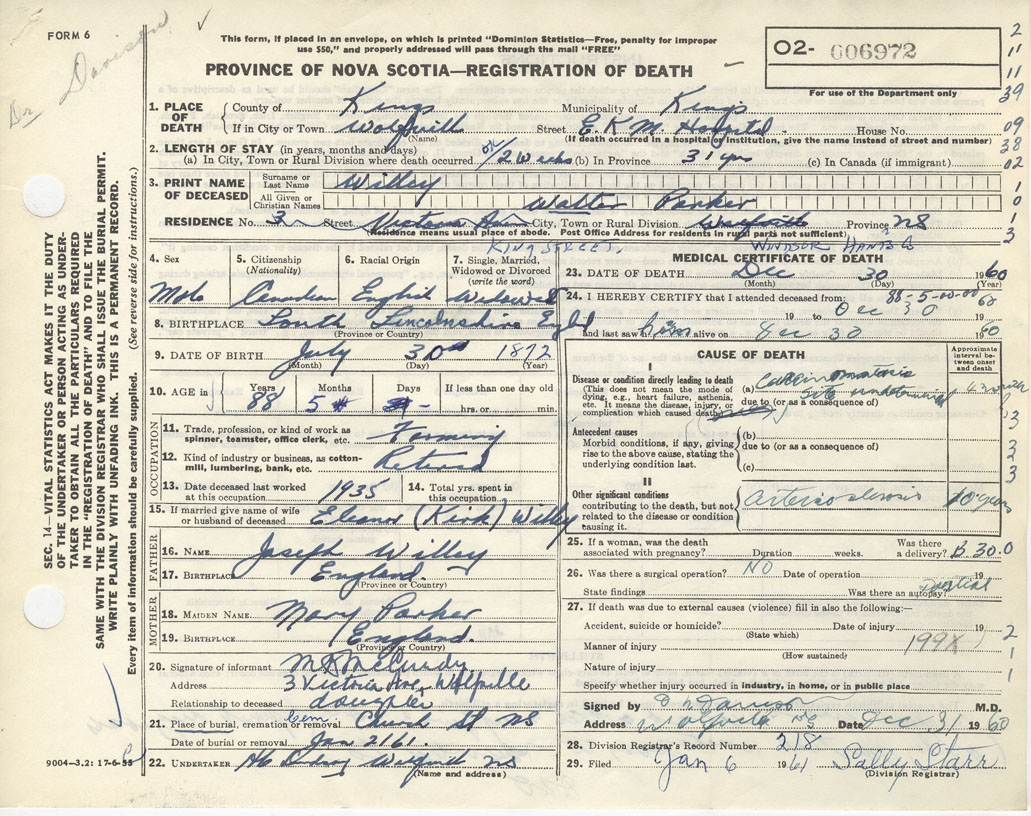 FORM 6
Dr Davison
This form, if placed in an envelope, on which is printed "Dominion Statistics—Free, penalty for improper
use $50," and properly addressed will pass through the mail "FREE"
PROVINCE OF NOVA SCOTIA—REGISTRATION OF DEATH
O2- 006972
For use of the Department only
2
11
11
39
09
38
02
1. PLACE OF DEATH { County of Kings Municipality of Kings
If in City or Town Wolfville (Name) Street E.K.M. Hospital House No.
(If death occurred in a hospital or institution, give the name instead of street and number)
2. LENGTH OF STAY (in years, months and days)
(a) In City, Town or Rural Division where death occurred 2 weeks (b) In Province 31 yrs (c) In Canada (if immigrant)
3. PRINT NAME OF DECEASED { Surname or Last Name Willey
All Given or Christian Names Walter Parker
RESIDENCE No. 3 Street Victoria Ave City, Town or Rural Division Wolfville Province NS
(Residence means usual place of abode. Post Office Address for residents in rural parts not sufficient)
KING STREET, WINDSOR HANTS
4. Sex Male
5. Citizenship (Nationality) Canadian
6. Racial Origin English
7. Single, Married, Widowed or Divorced (write the word) Widowed
8. BIRTHPLACE South Lincolnshire Engld
(Province or Country)
9. DATE OF BIRTH July 30 1872
(Month) (Day) (Year)
10. AGE in { Years 88 Months 5 Days - If less than one day old hrs. or min.
OCCUPATION
11. Trade, profession, or kind of work as spinner, teamster, office clerk, etc. Farming
12. Kind of industry or business, as cotton-mill, lumbering, bank, etc. Retired
13. Date deceased last worked at this occupation 1935
14. Total yrs. spent in this occupation
15. If married give name of wife or husband of deceased Eleanor (Kirk) Willey
FATHER
16. NAME Joseph Willey
17. BIRTHPLACE England
(Province or Country)
MOTHER
18. MAIDEN NAME Mary Parker
19. BIRTHPLACE England.
(Province or Country)
20. Signature of informant McCurdy
Address 3 Victoria Ave, Wolfville
Relationship to deceased daughter
21. Place of burial, cremation or removal Cem Church St NS
Date of burial or removal Jan 2 1 61.
22. UNDERTAKER Wolfville NS
(Name and address)
MEDICAL CERTIFICATE OF DEATH
23. DATE OF DEATH Dec 30 1960
(Month) (Day) (Year)
24. I HEREBY CERTIFY that I attended deceased from: 88-5-00-00
19 to Dec 30 60
and last saw him alive on Dec 30 1960
CAUSE OF DEATH
Approximate interval between onset and death
I
Disease or condition directly leading to death
(This does not mean the mode of dying, e.g., heart failure, asthenia, etc. It means the disease, injury, or complication which caused death.)
(a) Carcinomatosis
site undetermined
due to (or as a consequence of)
Antecedent causes
Morbid conditions, if any, giving rise to the above cause, stating the underlying condition last.
(b)
due to (or as a consequence of)
(c)
II
Other significant conditions contributing to the death, but not related to the disease or condition causing it.
Arteriosclerosis 10 years
25. If a woman, was the death associated with pregnancy? Duration weeks. Was there a delivery? B 30.0
26. Was there a surgical operation? NO Date of operation 19
State findings Was there an autopsy? partial
27. If death was due to external causes (violence) fill in also the following:—
Accident, suicide or homicide? (State which) Date of injury 19
Manner of injury 199X
(How sustained)
Nature of injury
Specify whether injury occurred in industry, in home, or in public place
Signed by Davison M.D.
Address Wolfville NS Date Dec 31 1960
28. Division Registrar's Record Number 218
29. Filed Jan 6 1961 Sally Starr
(Division Registrar)
SEC. 14—VITAL STATISTICS ACT MAKES IT THE DUTY
OF THE UNDERTAKER OR PERSON ACTING AS UNDER-
TAKER TO OBTAIN ALL THE PARTICULARS REQUIRED
IN THE "REGISTRATION OF DEATH" AND TO FILE THE
SAME WITH THE DIVISION REGISTRAR WHO SHALL ISSUE THE BURIAL PERMIT.
WRITE PLAINLY WITH UNFADING INK. THIS IS A PERMANENT RECORD.
Every item of information should be carefully supplied. (See reverse side for instructions.)
9004—3.2: 17-6-55